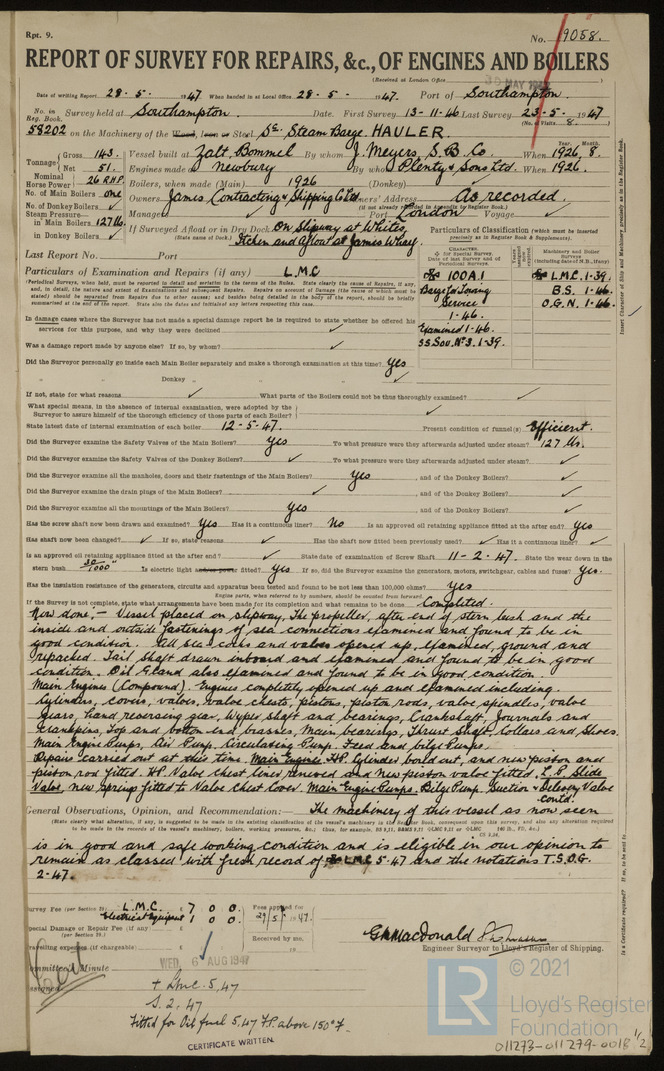 Rpt. 9.
No. 19058.
REPORT OF SURVEY FOR REPAIRS, &c., OF ENGINES AND BOILERS
(Received at London Office
30 MAY 1947
Date of writing Report 28 - 5 - 1947 When handed in at Local Office 28 - 5 - 1947. Port of Southampton.
No. in Reg. Book. Survey held at Southampton. Date. First Survey 13-11-46 Last Survey 23-5-1947
(No. of Visits 8.)
58202 on the Machinery of the Wood, Iron or Steel Sc. Steam Barge HAULER.
Tonnage Gross 143. Net 51.
Vessel built at Zalt Bommel By whom J. Meyers, S.B. Co. When 1926, 8.
Year. Month.
Engines made at Newbury By whom Plenty & Sons Ltd. When 1926.
Nominal Horse Power 26 RHP.
Boilers, when made (Main) 1926 (Donkey)
No. of Main Boilers one
Owners James Contracting & Shipping Co Ltd Owners' Address As recorded.
(if not already recorded in Appendix to Register Book.)
No. of Donkey Boilers ✓
Managers ✓ Port London Voyage ✓
Steam Pressure—
in Main Boilers 127 lb.
in Donkey Boilers ✓
If Surveyed Afloat or in Dry Dock On Slipway at Whites,
(State name of Dock.) Itchen and Afloat at James Wharf.
Particulars of Classification (which must be inserted
precisely as in Register Book & Supplements).
Last Report No. Port
Particulars of Examination and Repairs (if any) L.M.C
100A.1
Barge for Towing
Service
1-46.
Examined 1-46.
SS.Sou.No3.1-39.
L.M.C. 1-39.
B.S. 1-46.
O.G.N. 1-46.
In damage cases where the Surveyor has not made a special damage report he is required to state whether he offered his
services for this purpose, and why they were declined ✓
Was a damage report made by anyone else? If so, by whom? ✓
Did the Surveyor personally go inside each Main Boiler separately and make a thorough examination at this time? Yes
" Donkey " ✓
If not, state for what reasons ✓ What parts of the Boilers could not be thus thoroughly examined? ✓
What special means, in the absence of internal examination, were adopted by the
Surveyor to assure himself of the thorough efficiency of those parts of each Boiler? ✓
State latest date of internal examination of each boiler 12-5-47. Present condition of funnel(s) Efficient.
Did the Surveyor examine the Safety Valves of the Main Boilers? Yes To what pressure were they afterwards adjusted under steam? 127 lbs.
Did the Surveyor examine the Safety Valves of the Donkey Boilers? ✓ To what pressure were they afterwards adjusted under steam? ✓
Did the Surveyor examine all the manholes, doors and their fastenings of the Main Boilers? Yes, and of the Donkey Boilers? ✓
Did the Surveyor examine the drain plugs of the Main Boilers? ✓, and of the Donkey Boilers? ✓
Did the Surveyor examine all the mountings of the Main Boilers? Yes, and of the Donkey Boilers? ✓
Has the screw shaft now been drawn and examined? Yes Has it a continuous liner? No Is an approved oil retaining appliance fitted at the after end? Yes
Has shaft now been changed? ✓ If so, state reasons ✓ Has the shaft now fitted been previously used? ✓ Has it a continuous liner? ✓
Is an approved oil retaining appliance fitted at the after end? ✓ State date of examination of Screw Shaft 11-2-47. State the wear down in the
stern bush 30/1000" Is electric light and/or power fitted? Yes If so, did the Surveyor examine the generators, motors, switchgear, cables and fuses? Yes.
Has the insulation resistance of the generators, circuits and apparatus been tested and found to be not less than 100,000 ohms? Yes
Engine parts, when referred to by numbers, should be counted from forward.
If the Survey is not complete, state what arrangements have been made for its completion and what remains to be done Completed.
Now done:- Vessel placed on slipway, The propeller, after end of stern bush and the
inside and outside fastenings of sea connections examined and found to be in
good condition. All sea-cocks and valves opened up, examined, ground and
repacked. Tail Shaft drawn inboard and examined and found to be in good
condition. Oil Gland also examined and found to be in good condition.
Main Engines (Compound). Engines completely opened up and examined including.
Cylinders, covers, valves, valve chests, pistons, piston rods, valve spindles, valve
gears, hand reversing gear, Wyper shaft and bearings, Crankshaft, Journals and
crankpins, Top and bottom end brasses, Main bearings, Thrust Shaft Collars and Shoes.
Main Engine Pumps, Air Pump. Circulating Pump. Feed and bilge Pumps.
Repairs carried out at this time. Main Engines. HP. Cylinder bored out, and new piston and
piston rod fitted. HP. Valve chest liner renewed and new piston valve fitted. L.P. Slide
Valve, new spring fitted to Valve chest Cover. Main Engine Pumps. Bilge Pump. Suction & Delivery Valve
contd.
General Observations, Opinion, and Recommendation:— The machinery of this vessel as now seen
is in good and safe working condition and is eligible in our opinion to
remain as classed with fresh record of L.M.C. 5-47 and the notations T.S.O.G.
2-47.
Survey Fee (per Section 28) L.M.C. £ 7 0 0
Electrical Equipment 1 0 0
Special Damage or Repair Fee (if any) £
(per Section 28.)
Travelling expenses (if chargeable) £
Fees applied for
29/5/1947.
Received by me,
19
G.M.Macdonald
Engineer Surveyor to Lloyd's Register of Shipping.
Committee's Minute
WED. 6 AUG 1947
Assigned
+ LMC 5,47
S. 2. 47
Fitted for Oil fuel 5.47 F.P. above 150°F.
CERTIFICATE WRITTEN.
Insert Character of Ship and Machinery precisely as in the Register Book.
Is a Certificate required? If so, to be sent to
LR
© 2021
Lloyd's Register
Foundation
011273-011279-0018 1/2